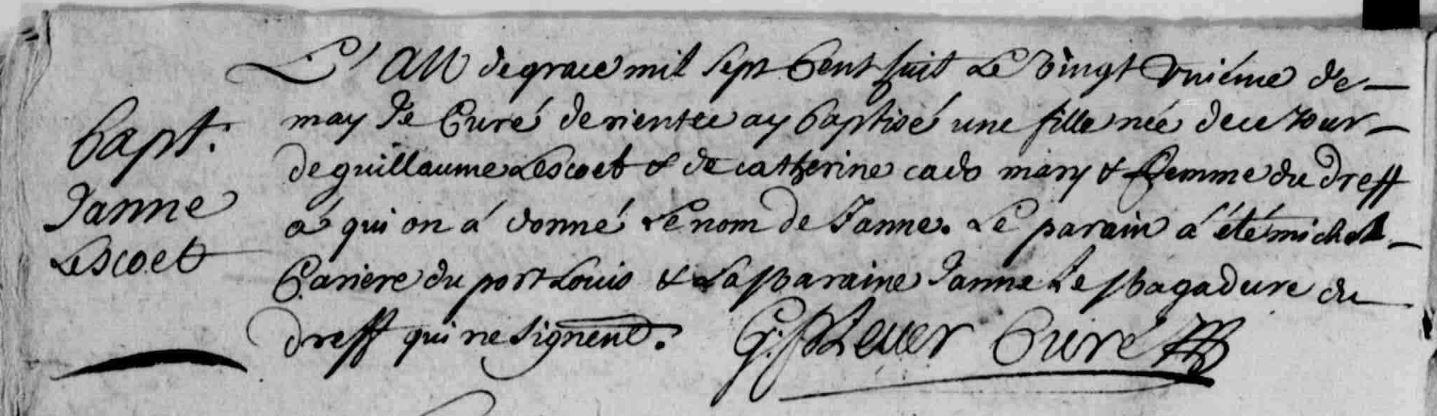 Bapt.
Janne
Lescoet
L'An de grace mil sept Cent huit Le Vingt Vniéme de
may Je Curé de rientec ay baptisé une fille née de ce Jour
de guillaume Lescoet & de catherine cado mary & femme du dreff
á qui on á donné Le nom de Janne. Le parain á été michel
Cariere du port Louis & La Maraine Janne Le Magadure du
dreff qui ne signent. Curé